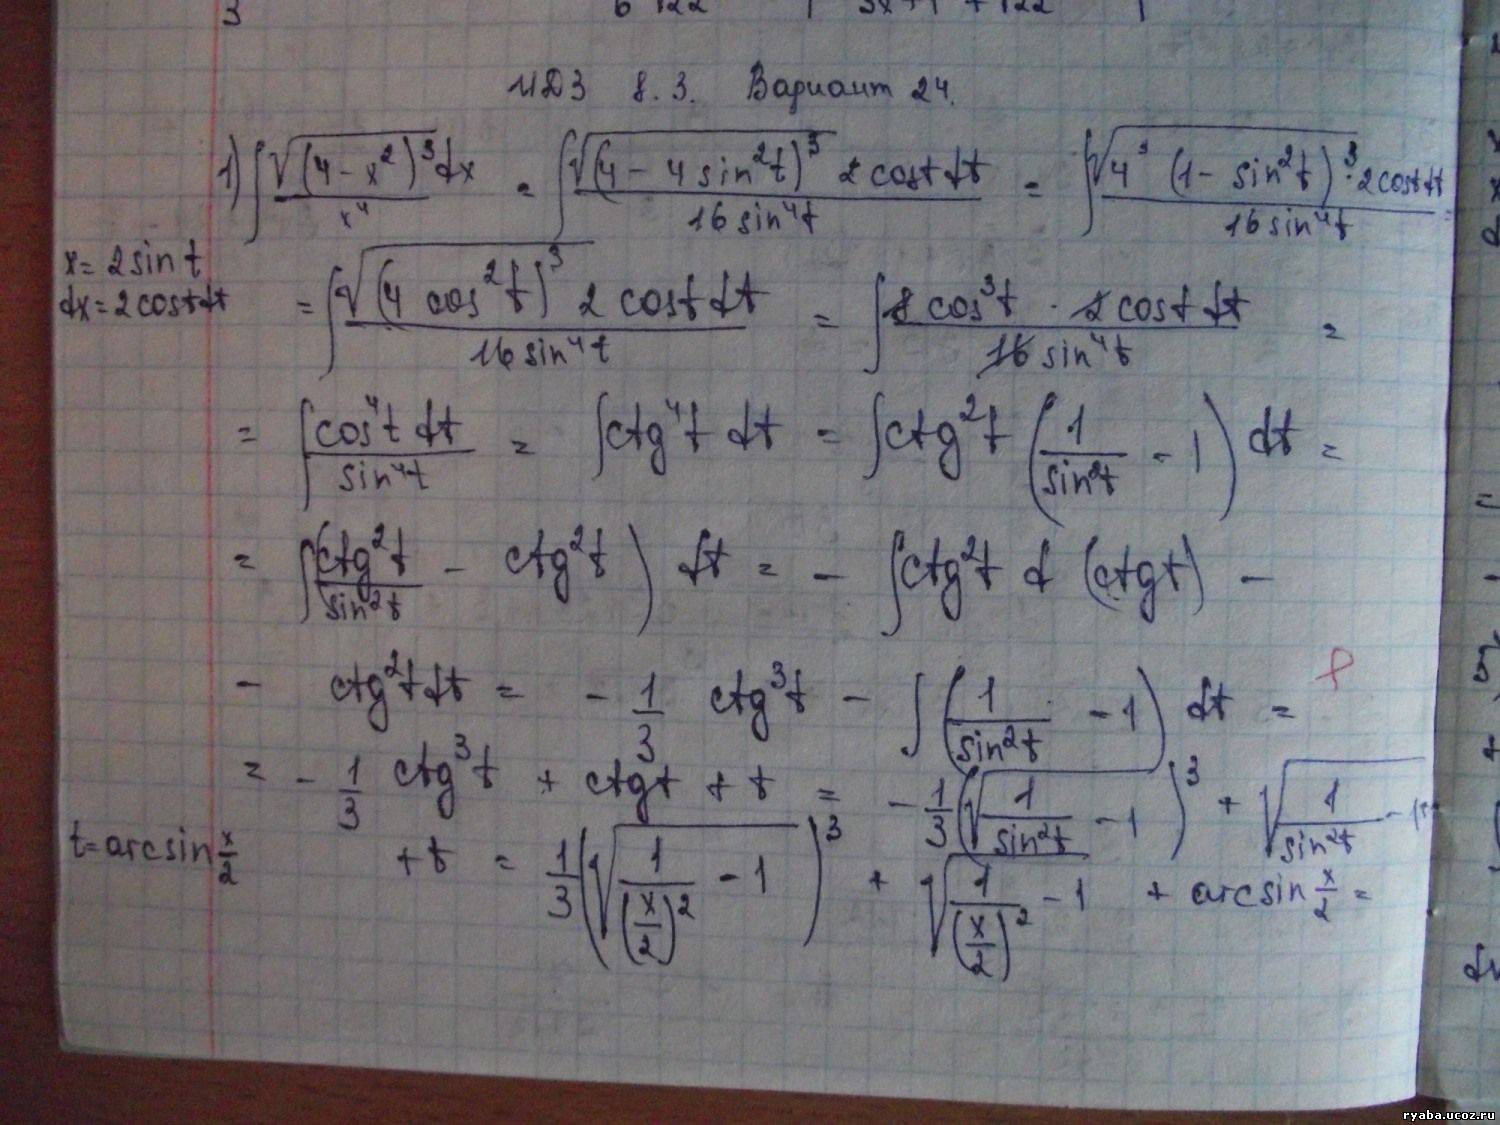 3
ИДЗ 8.3. Вариант 24.
1) ∫ √(4-x²)³ dx / x⁴ = ∫ √(4-4sin²t)³ 2cost dt / 16sin⁴t = ∫ √4³(1-sin²t)³·2cost dt / 16sin⁴t =
x=2sin t
dx=2cost dt
= ∫ √(4cos²t)³ 2cost dt / 16sin⁴t = ∫ 8cos³t · 2cost dt / 16sin⁴t =
= ∫ cos⁴t dt / sin⁴t = ∫ctg⁴t dt = ∫ctg²t (1/sin²t - 1) dt =
= ∫(ctg²t/sin²t - ctg²t) dt = - ∫ctg²t d(ctgt) -
- ctg²t dt = - 1/3 ctg³t - ∫(1/sin²t - 1) dt =
= - 1/3 ctg³t + ctgt + t = - 1/3(√(1/sin²t - 1))³ + √(1/sin²t - 1) +
t=arcsin x/2
+ t = 1/3(√(1/(x/2)² - 1))³ + √(1/(x/2)² - 1) + arcsin x/2 =
ryaba.ucoz.ru